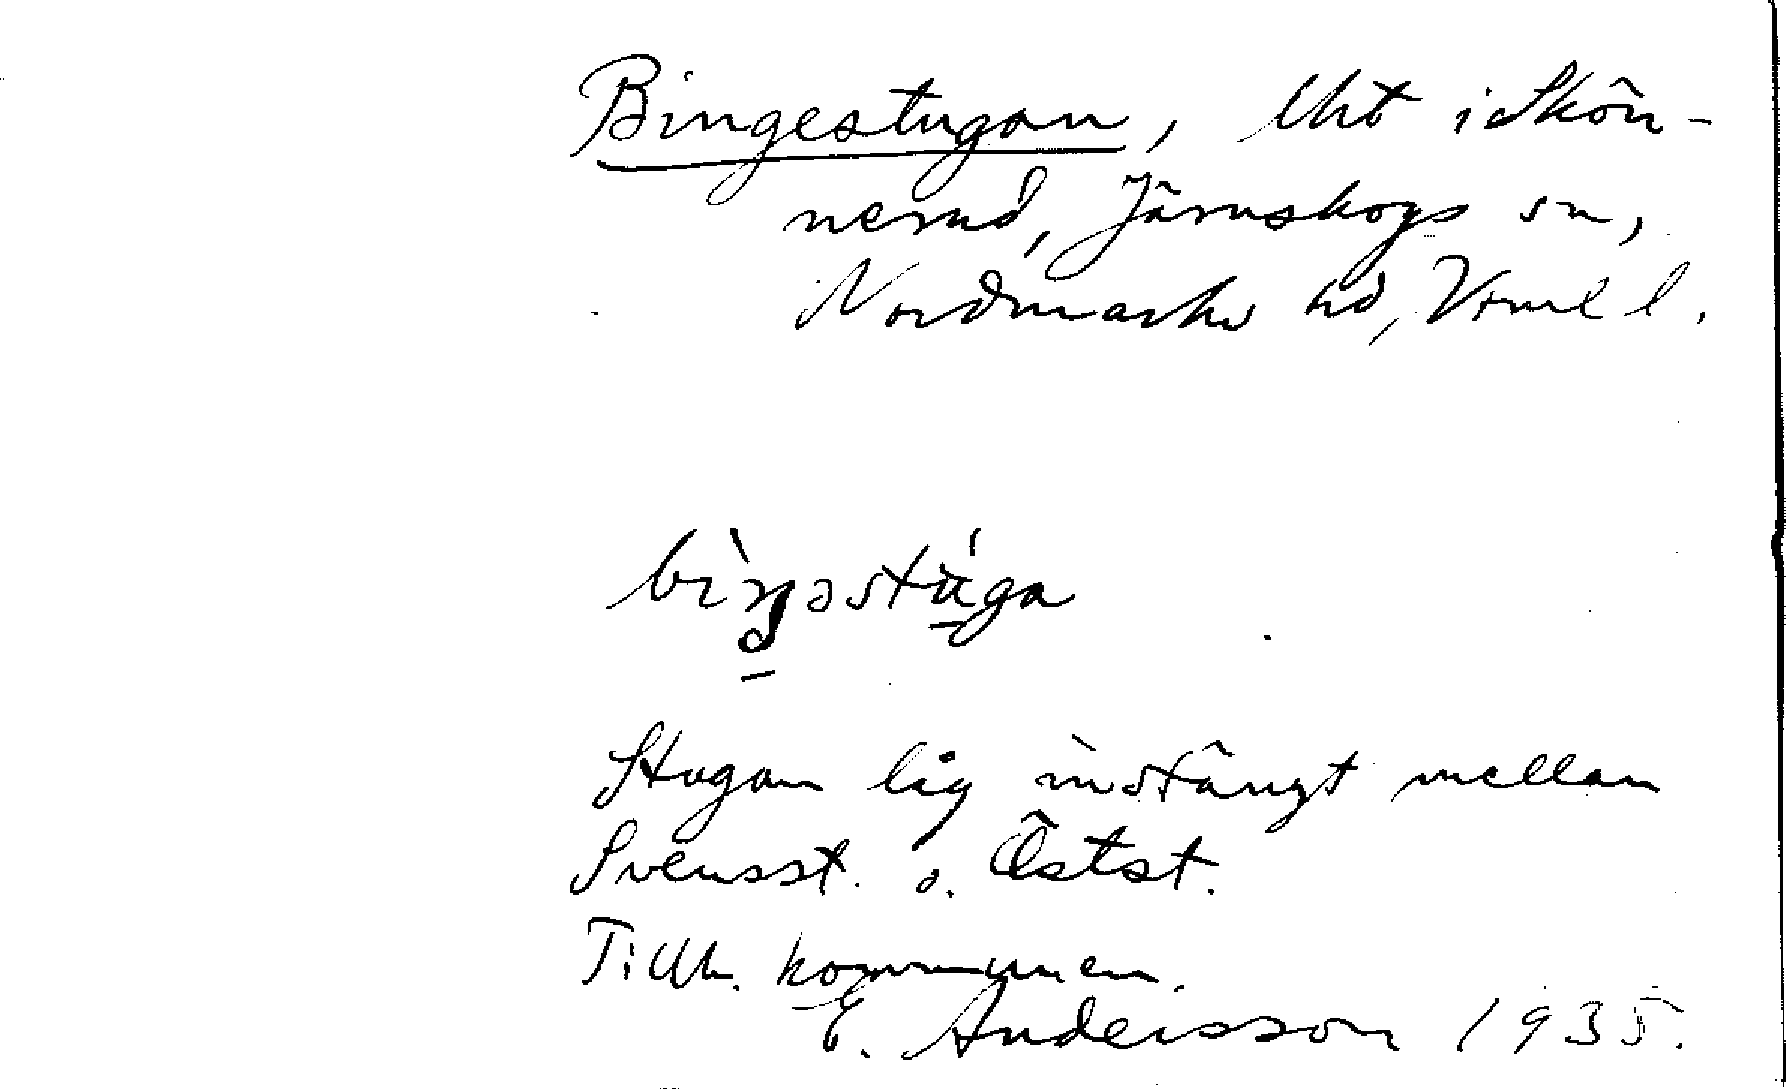 Bingestugan, lht i Skön-
nerud, Järnskogs sn,
Nordmarks hd, Vrml l.
bìŋəstúga
Stugan låg instängt mellan
Svensst. o. Östst.
Tillh. kommunen.
E. Andersson 1935.